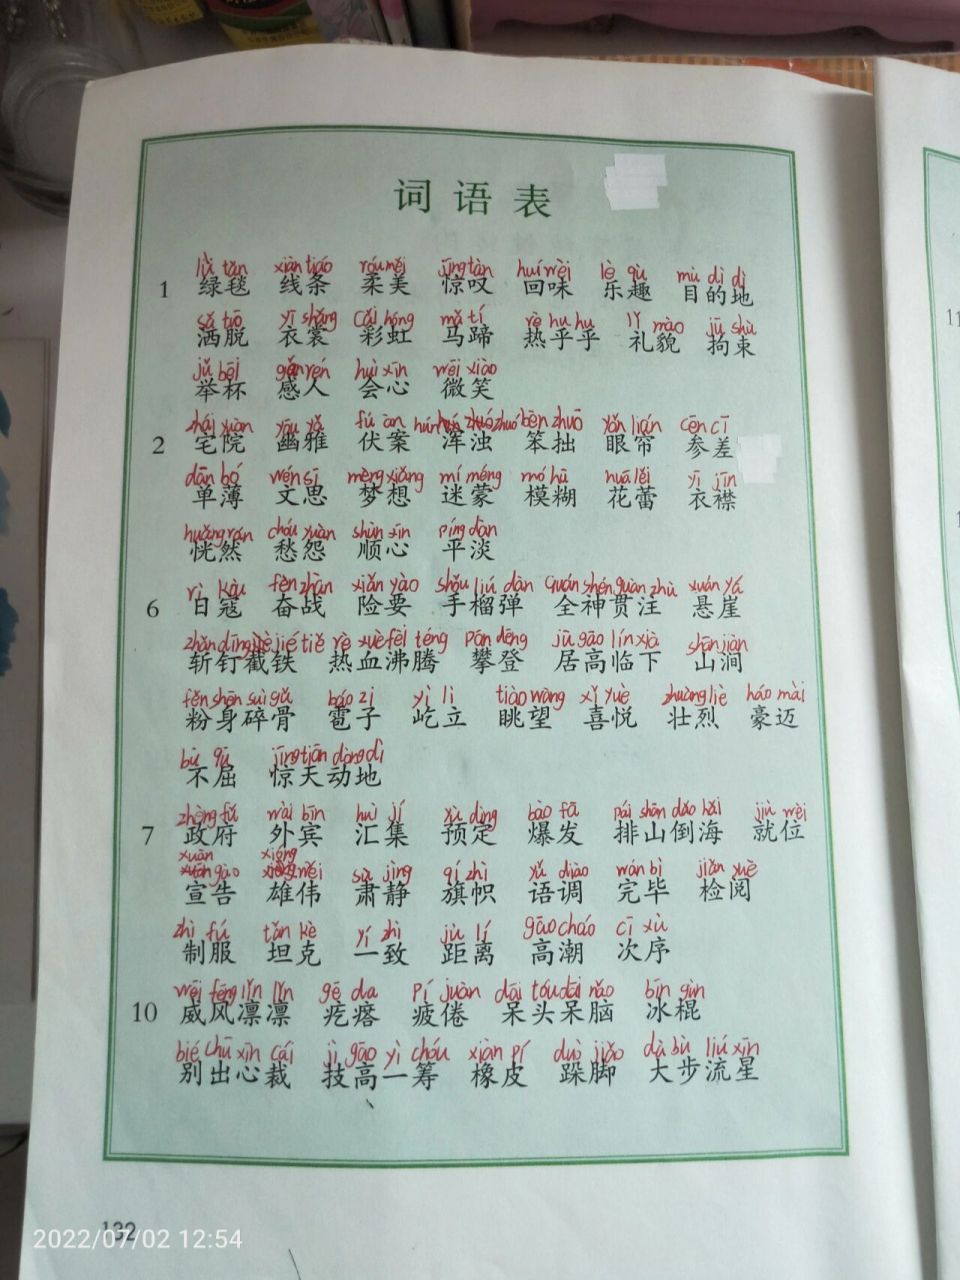 词语表
lǜ tǎn xiàn tiáo róu měi jīng tàn huí wèi lè qù mù dì dì
1 绿毯 线条 柔美 惊叹 回味 乐趣 目的地
sǎ tuō yī shǎng cǎi hóng mǎ tí rè hu hu lǐ mào jū shù
洒脱 衣裳 彩虹 马蹄 热乎乎 礼貌 拘束
jǔ bēi gǎn rén huì xīn wēi xiào
举杯 感人 会心 微笑
zhái yuàn yōu yǎ fú àn bèn zhuō yǎn lián cēn cī
2 宅院 幽雅 伏案 浑浊 笨拙 眼帘 参差
dān bó wén sī mèng xiǎng mí méng mó hū huā lěi yī jīn
单薄 文思 梦想 迷蒙 模糊 花蕾 衣襟
huǎng rán chóu yuàn shùn xīn píng dàn
恍然 愁怨 顺心 平淡
rì kòu fèn zhàn xiǎn yào shǒu liú dàn quán shén guàn zhù xuán yá
6 日寇 奋战 险要 手榴弹 全神贯注 悬崖
zhǎn dīng jié tiě rè xuè fèi téng pān dēng jū gāo lín xià shān jiàn
斩钉截铁 热血沸腾 攀登 居高临下 山涧
fěn shēn suì gǔ báo zi yì lì tiào wàng xǐ yuè zhuàng liè háo mài
粉身碎骨 雹子 屹立 眺望 喜悦 壮烈 豪迈
bù qū jīng tiān dòng dì
不屈 惊天动地
zhèng fǔ wài bīn huì jí yù dìng bào fā pái shān dǎo hǎi jiù wèi
7 政府 外宾 汇集 预定 爆发 排山倒海 就位
xuān gào xióng wěi sù jìng qí zhì yǔ diào wán bì jiǎn yuè
宣告 雄伟 肃静 旗帜 语调 完毕 检阅
zhì fú tǎn kè yí zhì jù lí gāo cháo cì xù
制服 坦克 一致 距离 高潮 次序
wēi fēng lǐn lǐn gē da pí juàn dāi tóu dāi nǎo bīng gùn
10 威风凛凛 疙瘩 疲倦 呆头呆脑 冰棍
bié chū xīn cái jì gāo yì chóu xiàn pí duò jiǎo dà bù liú xīn
别出心裁 技高一筹 橡皮 跺脚 大步流星
132
2022/07/02 12:54